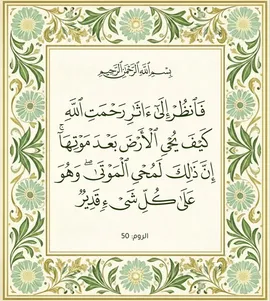 بِسْمِ اللَّهِ الرَّحْمَٰنِ الرَّحِيمِ
فَٱنظُرْ إِلَىٰٓ ءَاثَٰرِ رَحْمَتِ ٱللَّهِ
كَيْفَ يُحْىِ ٱلْأَرْضَ بَعْدَ مَوْتِهَآ ۚ
إِنَّ ذَٰلِكَ لَمُحْىِ ٱلْمَوْتَىٰ ۖ وَهُوَ
عَلَىٰ كُلِّ شَىْءٍ قَدِيرٌ
الروم: 50